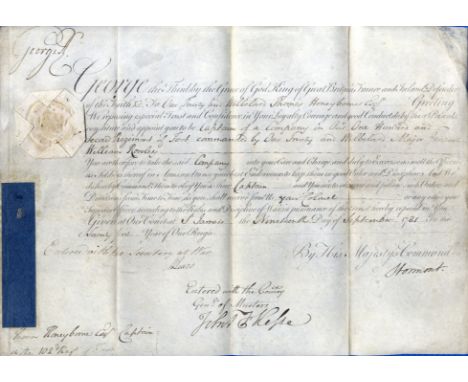 George R.
George the Third by the Grace of God King of Great Britain France and Ireland Defender
of the Faith &c. To Our Trusty and Welbeloved Thomas Honeyborne Esqr. Greeting
We reposing especial Trust and Confidence in Your Loyalty Courage and good Conduct do by these Presents
constitute and appoint you to be Captain of a Company in Our One Hundred and
second Regiment of Foot commanded by Our Trusty and Welbeloved Major General
William Rowley
You are therefore to take the said Company into your Care and Charge and duly to Exercise as well the Officers
as Soldiers thereof in Arms and to use your best Endeavours to keep them in good Order and Discipline And We
do hereby Command them to Obey You as their Captain And You are to observe and follow such Orders and
Directions from time to time as you shall receive from Us your Colonel or any other your
Superior Officer according to the Rules and Discipline of War in pursuance of the Trust hereby reposed in You
Given at Our Court at St. James's the Nineteenth Day of September 1781 In the
Twenty first Year of Our Reign
By His Majesty's Command
Stormont
Entered with the Secretary at War
Entered with the
Genl. of Musters
John
Thomas Honeyborne Esqr. Captain
in the 102d Regt. of Foot